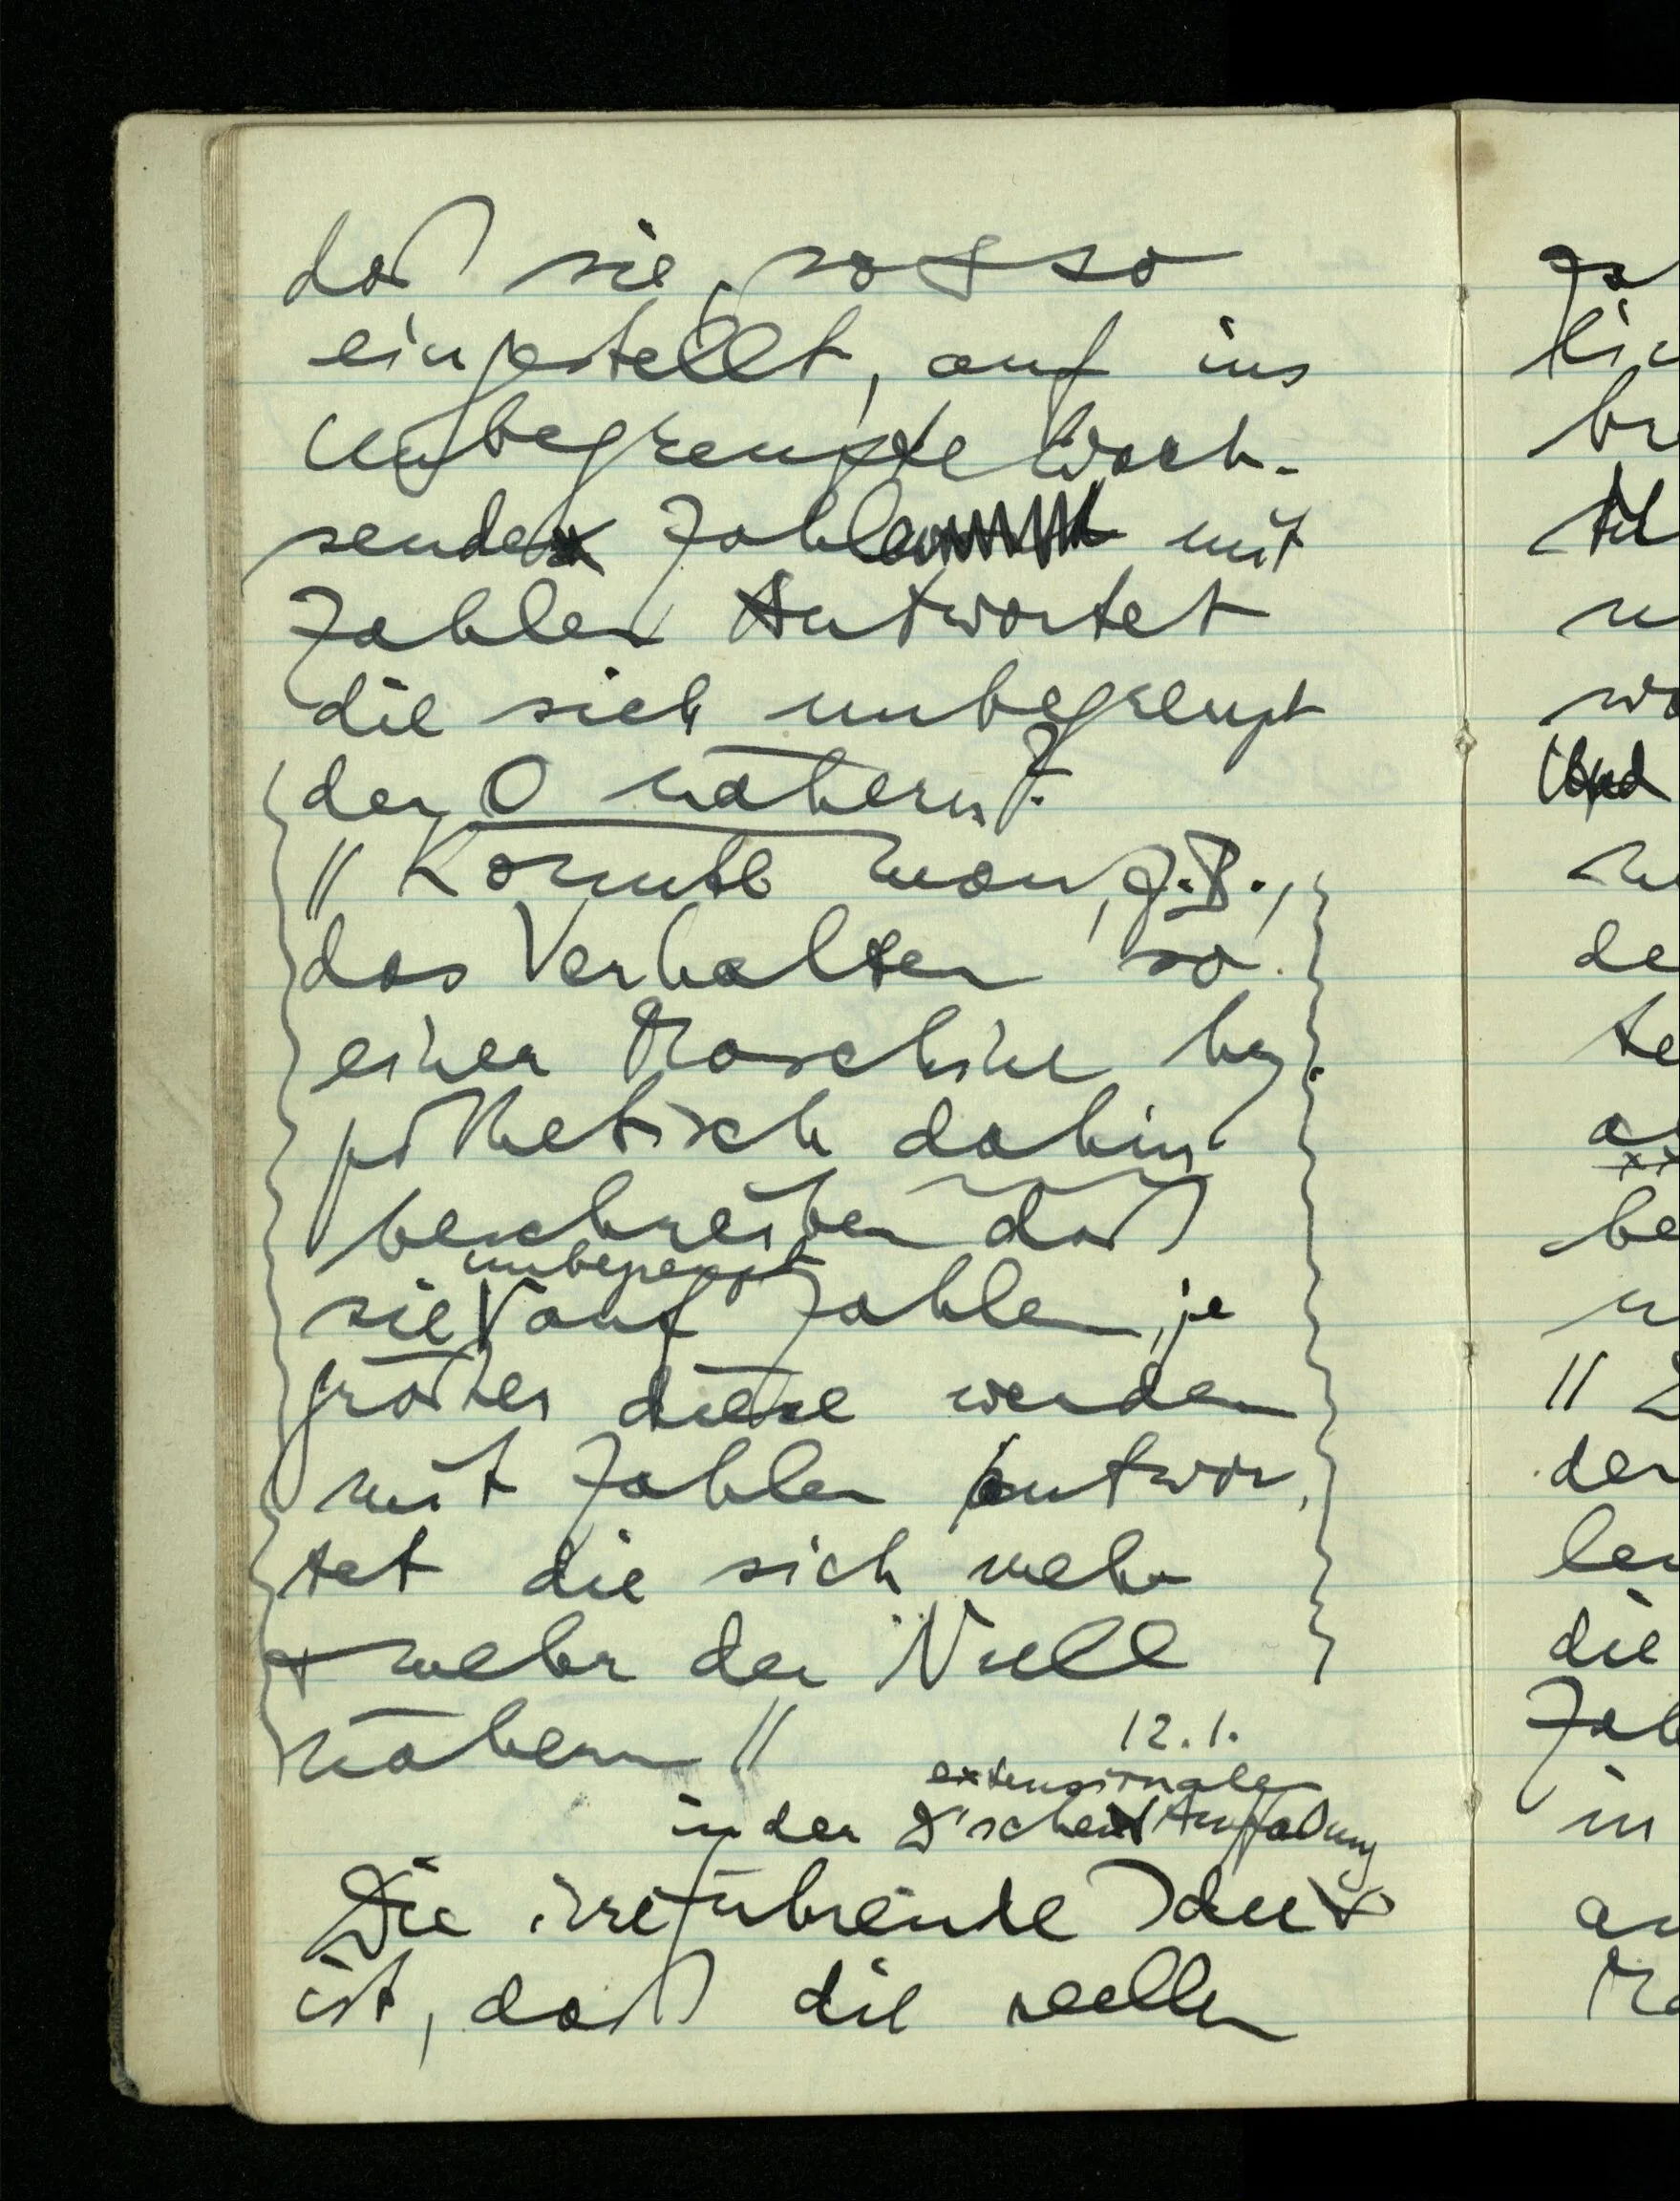 daß sie, so & so
eingestellt, auf ins
Unbegrenzte wach-
sende Zahlen mit
Zahlen Antwortet
die sich unbegrenzt
der 0 nähern?
// Könnte man, z.B.,
das Verhalten so
einer Maschine hy-
pothetisch dahin
beschreiben daß
unbegrenzt
sie auf Zahlen, je
größer diese werden
mit Zahlen antwor-
tet die sich mehr
& mehr der Null
nähern //
12.1.
extensionale
in der D'schen Auffaßung
Die irreführende Idee
ist, daß die reellen
za
lic
br
n
wo
Und
de
te
be
//
der
len
die
Zah
in